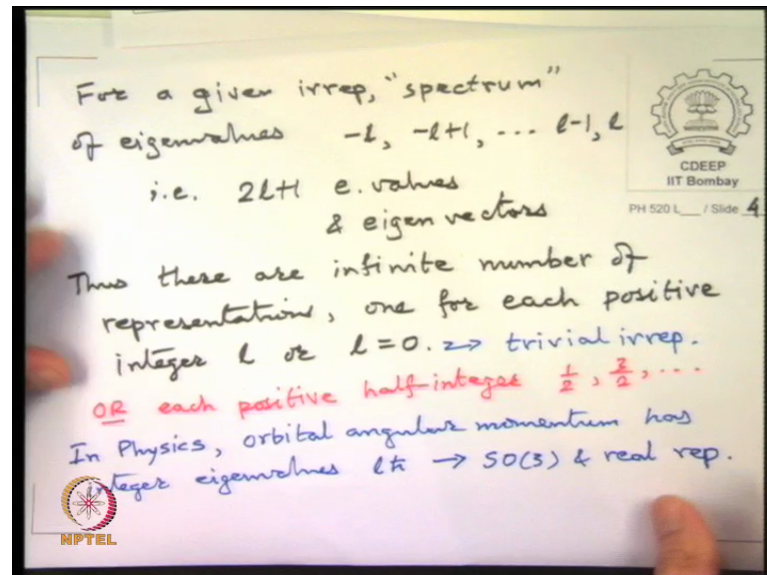 For a given irrep, "spectrum"
of eigenvalues -l, -l+1, ... l-1, l
i.e. 2l+1 e.values
& eigen vectors
CDEEP
IIT Bombay
PH 520 L___ / Slide 4
Thus there are infinite number of
representations, one for each positive
integer l or l=0. → trivial irrep.
OR each positive half-integer 1/2, 3/2, ...
In Physics, orbital angular momentum has
integer eigenvalues lħ → SO(3) & real rep.
NPTEL